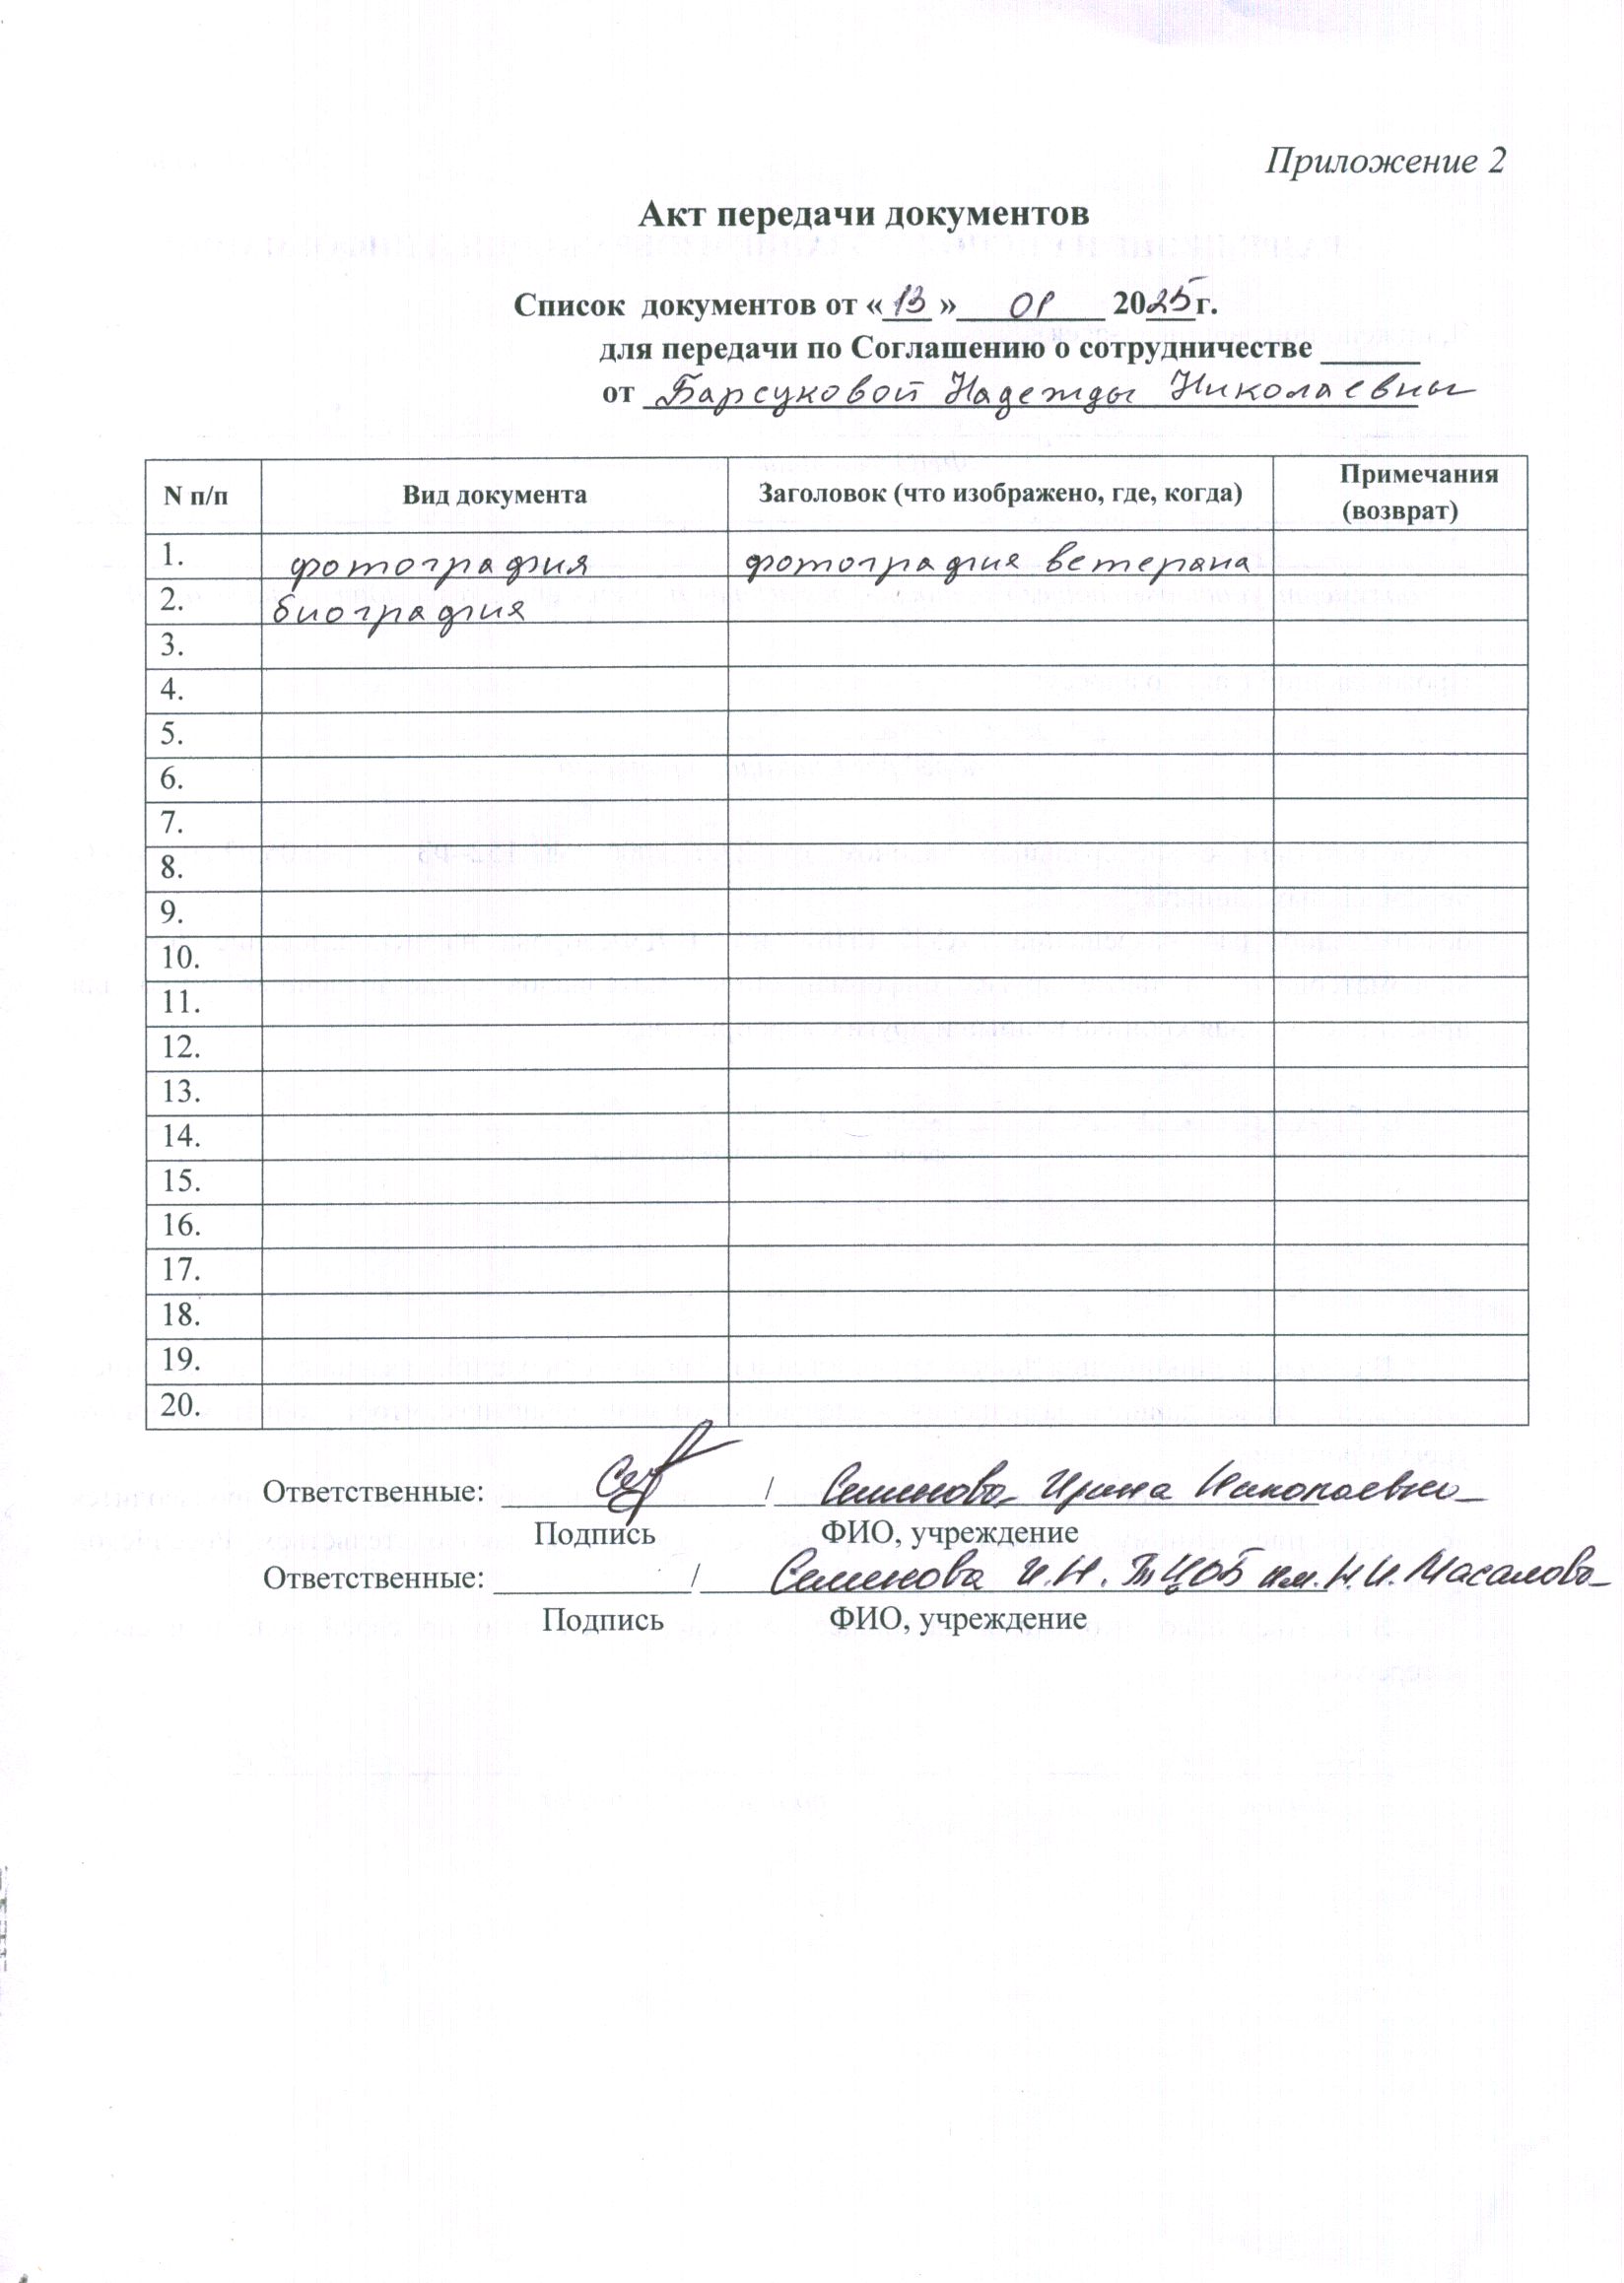 Приложение 2
Акт передачи документов
Список документов от «13» 01 2025г.
для передачи по Соглашению о сотрудничестве ______
от Барсуковой Надежды Николаевны
N п/п Вид документа Заголовок (что изображено, где, когда) Примечания (возврат)
1. фотография фотография ветерана
2. биография
3.
4.
5.
6.
7.
8.
9.
10.
11.
12.
13.
14.
15.
16.
17.
18.
19.
20.
Ответственные: / Семенова Ирина Николаевна
Подпись ФИО, учреждение
Ответственные: ____________/ Семенова И.Н. ТЦОБ им. Н.И. Масалова
Подпись ФИО, учреждение